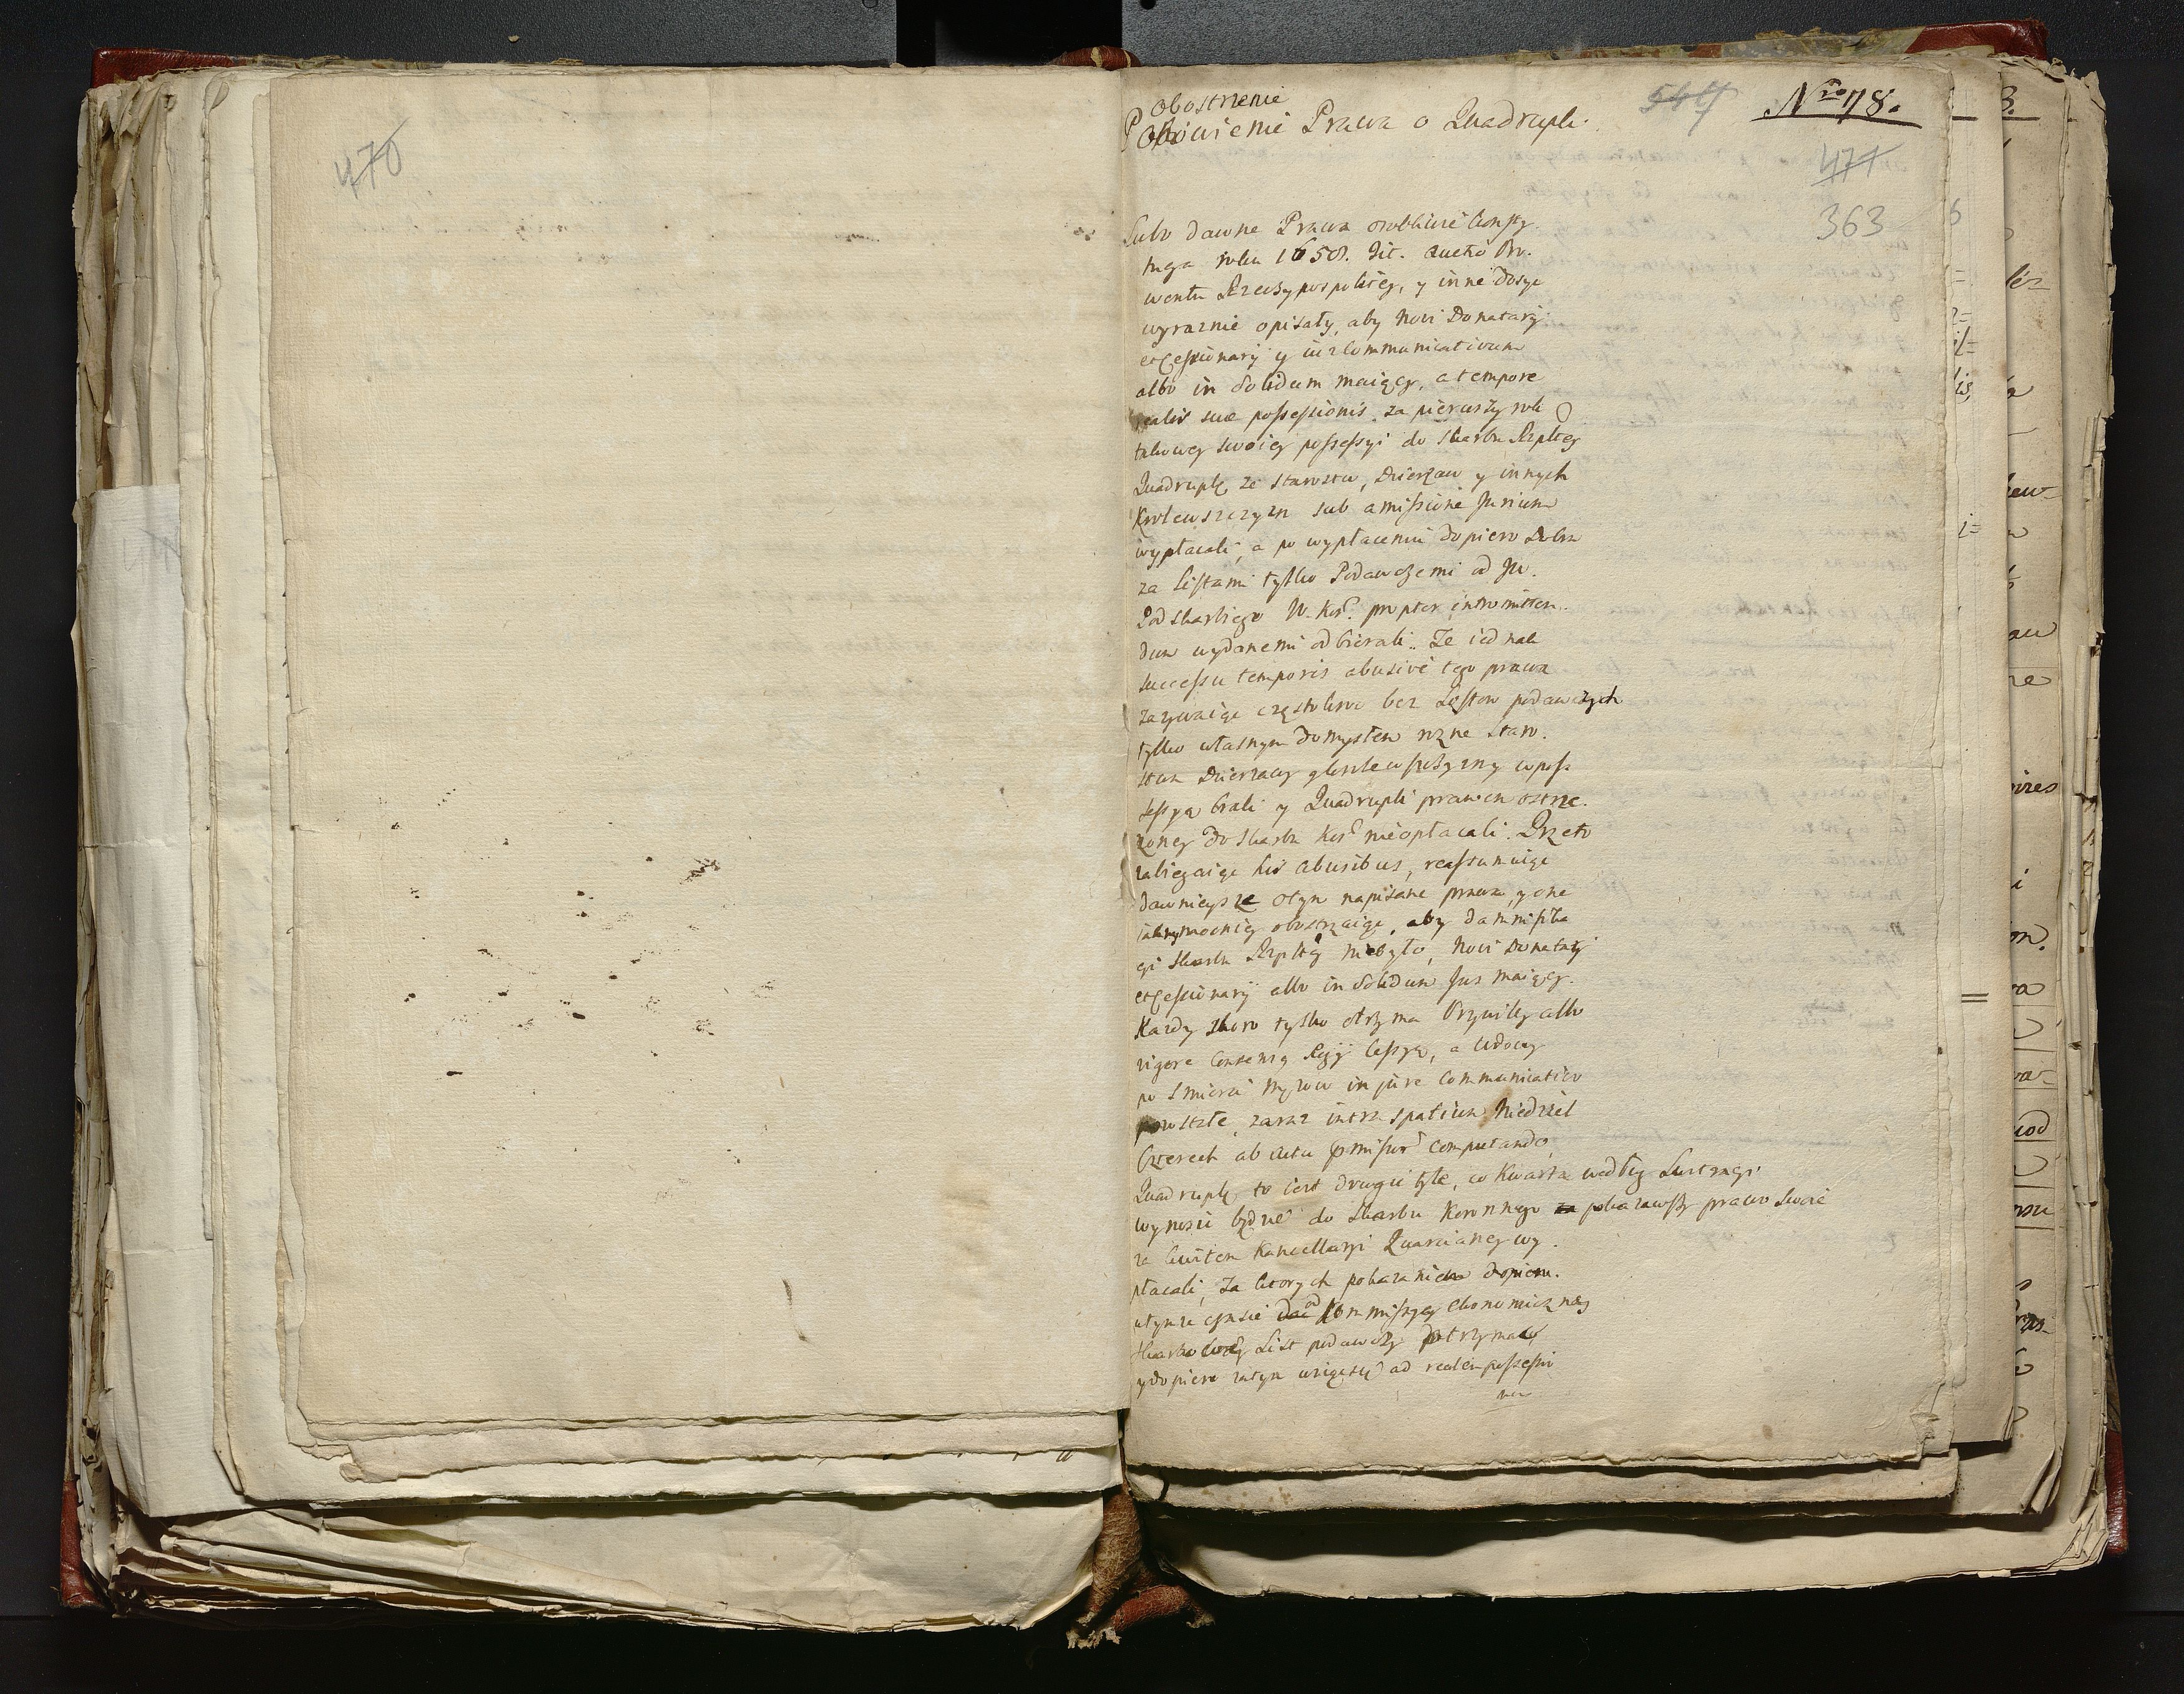 470
Obostrzenie
Obiasnienie Prawa o Quadrupli.
544
Nro 78.
471
363
Lubo dawne Prawa osobliwie Consty-
tucya roku 1658. Tit. Auctio Pro-
wentu Rzeczypospolitey, y inne dosyc
wyraznie opisały, aby Novi Donatarij
et Cessionarij y ius Communicativum
albo in Solidum maiący, a tempore
realis suae possessionis za pierwszy rok
takowey swoiey possessyi do Skarbu Rzpltey
Quadruplę ze Starostw, Dzierżaw y innych
Krolewszczyzn sub amissione Jurium
wypłacali, a po wypłaceniu dopiero Dobra
za Listami tylko Podawczemi od JW.
Podskarbiego W. Kor. propter intromitten-
dum wydanemi odbierali. Ze iednak
successu temporis abusive tego prawa
zazywaiąc częstokroc bez Listow podawczych
tylko własnym domysłem rozne Staro-
stwa Dzierzawy y Krolewszczyzny w pos-
sessyą brali y Quadrupli prawem ostrze-
zoney do Skarbu Kor. nieopłacali. Przeto
zabiegaiąc his abusibus, reassumuiąc
dawnieysze o tym napisane prawa, y one
mocniey obostrzaiąc, aby damnifika-
cyi Skarbu Rzpltey niebyło, Novi Donatarij
et Cessionarij albo in Solidum Jus maiący.
Kazdy skoro tylko otrzyma Przywiley albo
vigore Consensu Regij Cessyą, a Wdowy
po smierci Męzow in jure Communicativo
pozostałe, zaraz intra spatium Niedziel
Czterech ab actu praemissor. computando
Quadruplę to iest drugie tyle, co Kwarta według Lustracyi
wynosić będzie do Skarbu Koronnego za pokazawszy prawo swoie
za kwitem Kancellaryi Kwarcianey wy-
płacali, Za ktorych pokazaniem dopiero
w tymze czasie od Kommissyey Ekonomiczney
Skarbowey List podawczy otrzymać
y dopiero zatym wziąść ad realem possessio-
nem